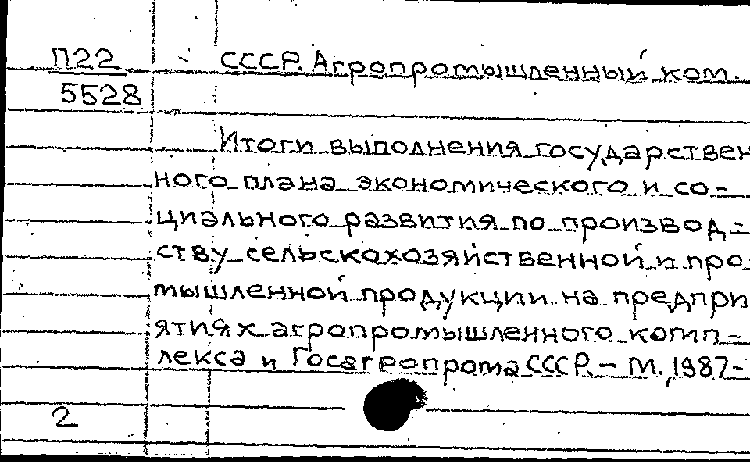 П22 СССР. Агропромышленный ком.
5528
Итоги выполнения государствен
ного плана экономического и со-
циального развития по производ-
ству сельскохозяйственной и про
мышленной продукции на предпри
ятиях агропромышленного комп-
лекса и Госагропрома СССР. – М., 1987-
2